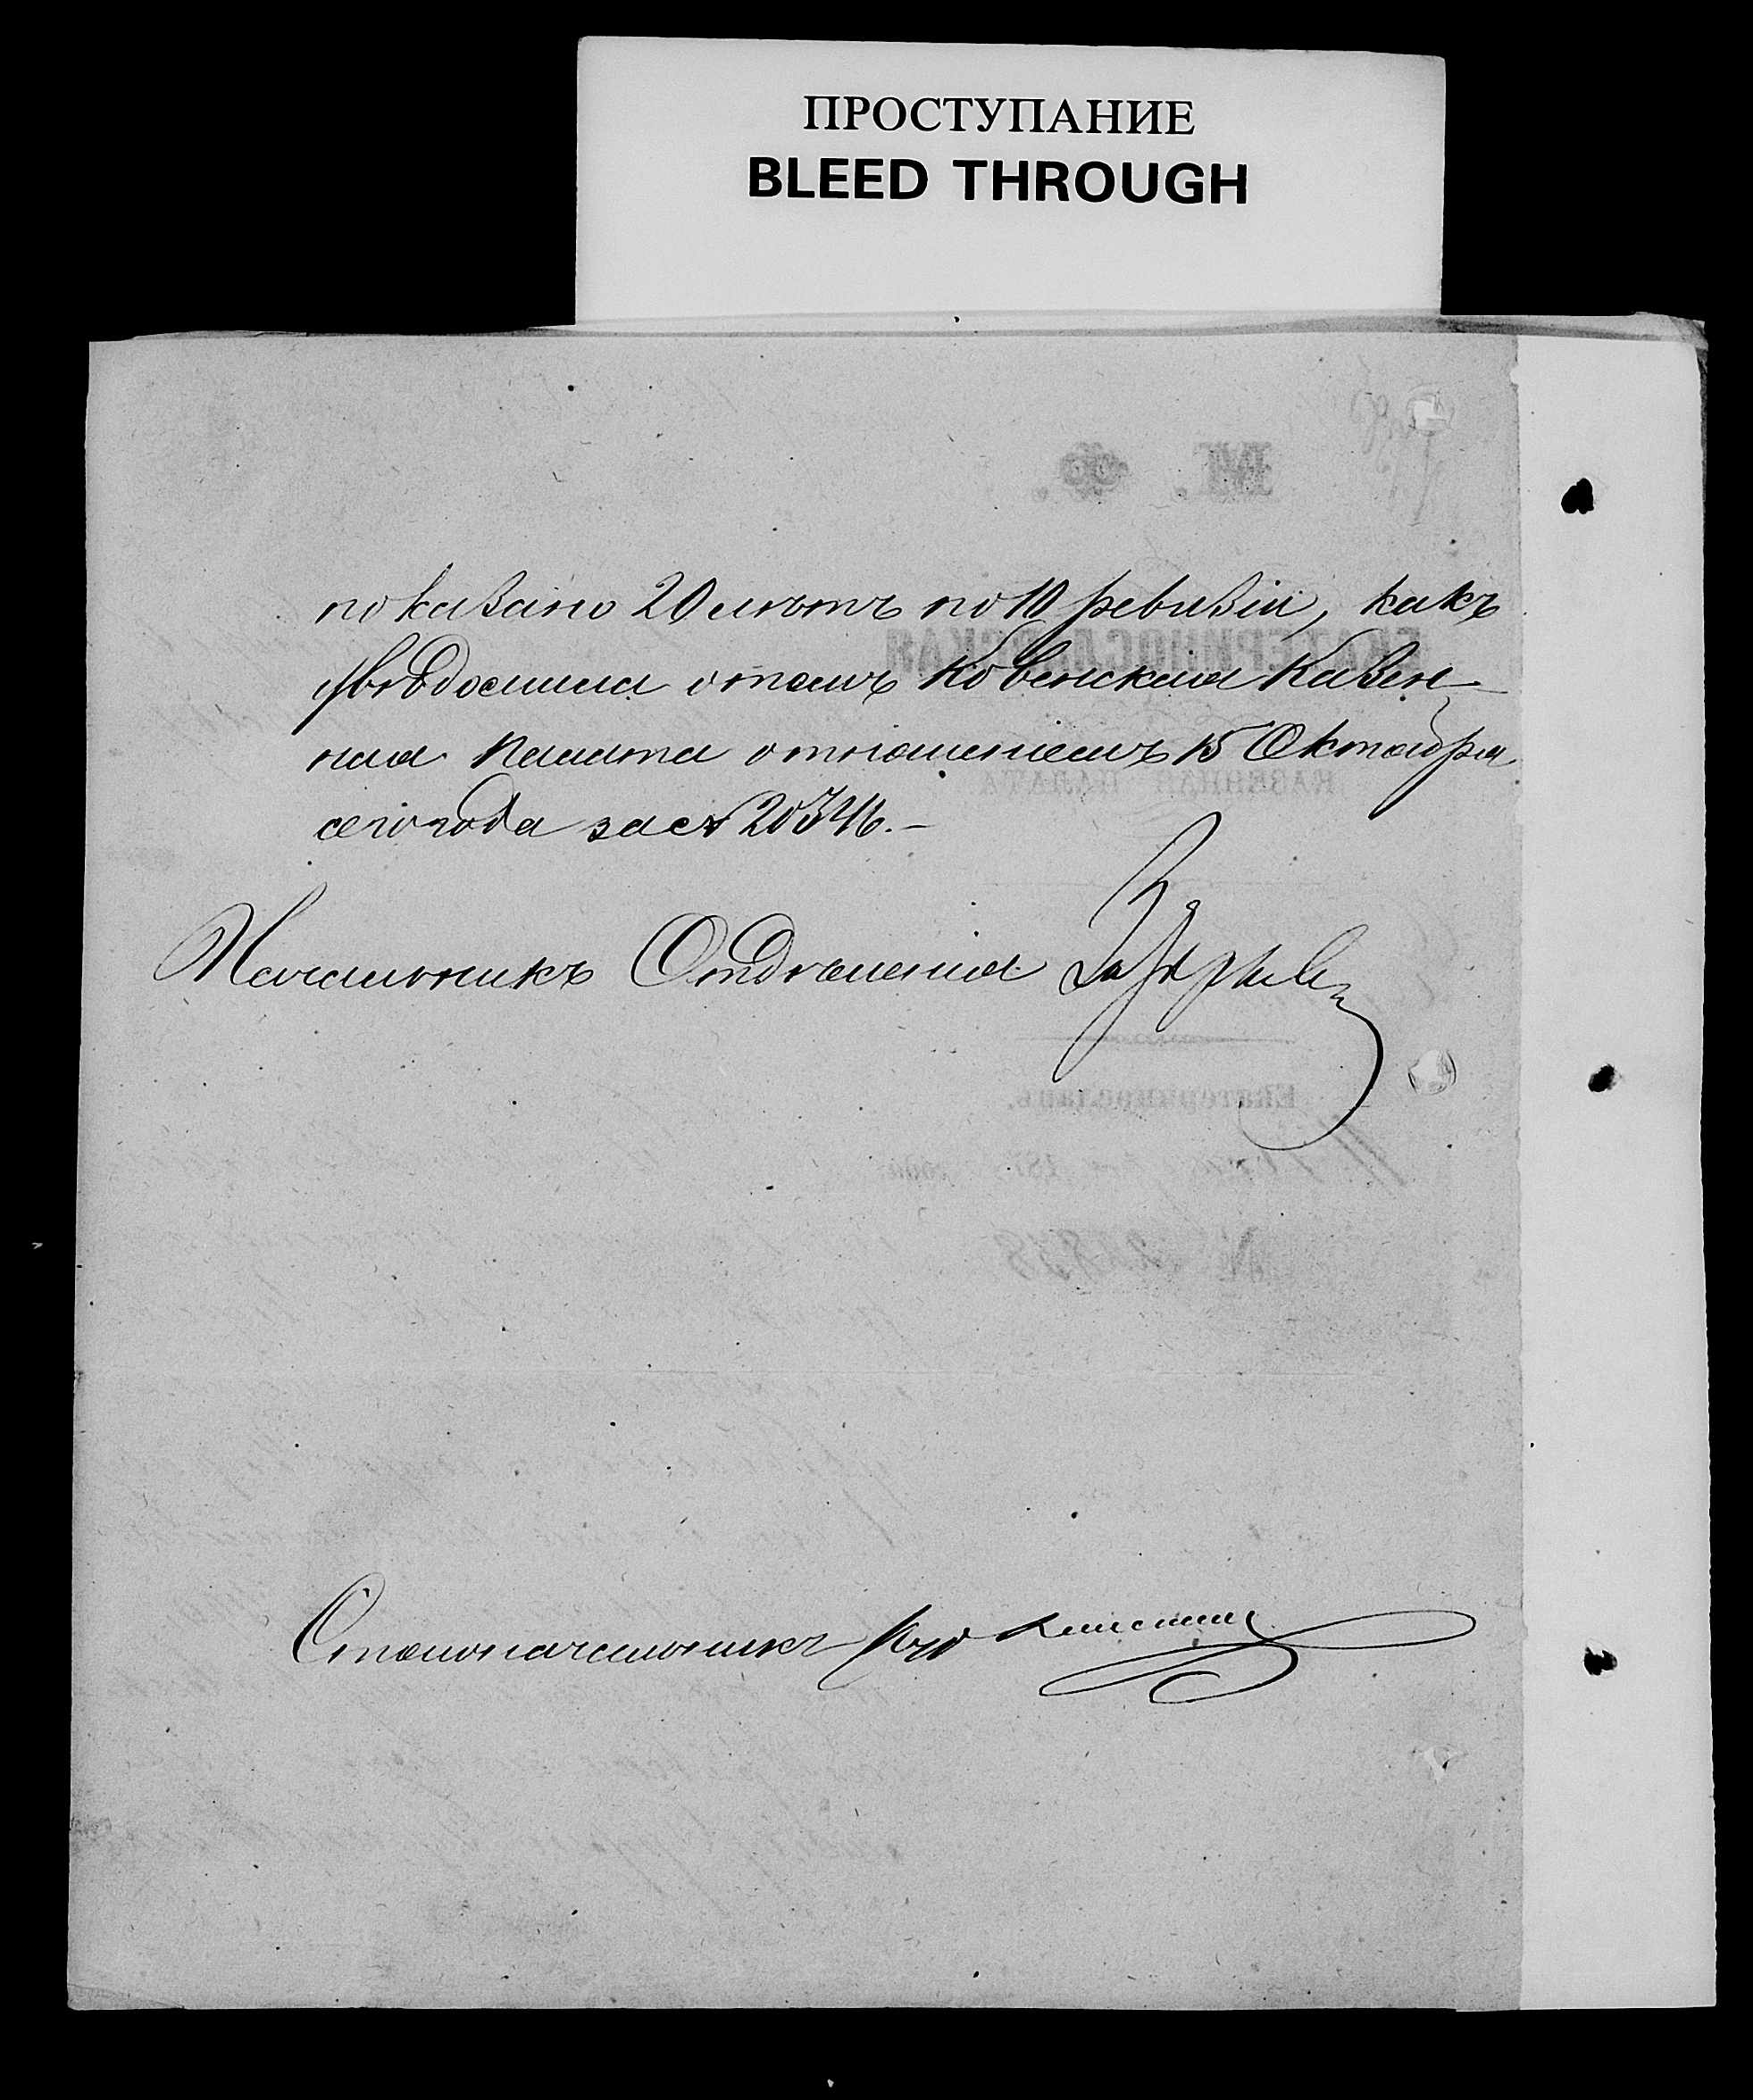 ПРОСТУПАНИЕ
BLEED THROUGH
показано 20 лѣтъ по 10 ревизіи, какъ
увѣдомила о томъ Ковенская Казен-
ная Палата отношеніемъ 15 Октября
сего года за № 20346.-
Начальникъ Отдѣленія
Столоначальникъ
М. Ф.
ЕКАТЕРИНОСЛАВСКАЯ
КАЗЕННАЯ ПАЛАТА
Екатеринославъ.